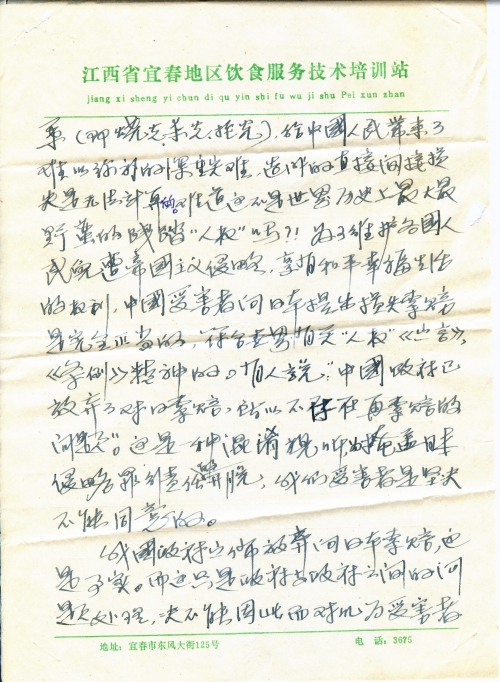 江西省宜春地区饮食服务技术培训站
jiang xi sheng yi chun di qu yin shi fu wu ji shu Pei xun zhan
策(即烧光、杀光、抢光),给中國人民带来了
难以弥补的深重灾难,造成的直接间接损
失是无法计算的。难道这不是世界历史上最大最
野蛮的践踏“人权”吗?!为了维护各國人
民免遭帝國主义侵略,享有和平幸福生活
的权利,中國受害者向日本提出损失索赔
是完全正当的,符合世界有关“人权”《宣言》,
《条例》精神的。有人说:“中國政府已
放弃了对日索赔,所以不存在再索赔的
问题”。这是一种混淆视听,掩盖日本
侵略罪行责任,我们受害者是坚决
不能同意的。
我國政府宣佈放弃向日本索赔,这
是事实。而这只是政府与政府之间的问
题处理,决不能因此而对为受害者
地址:宜春市东风大街125号
电话:3675